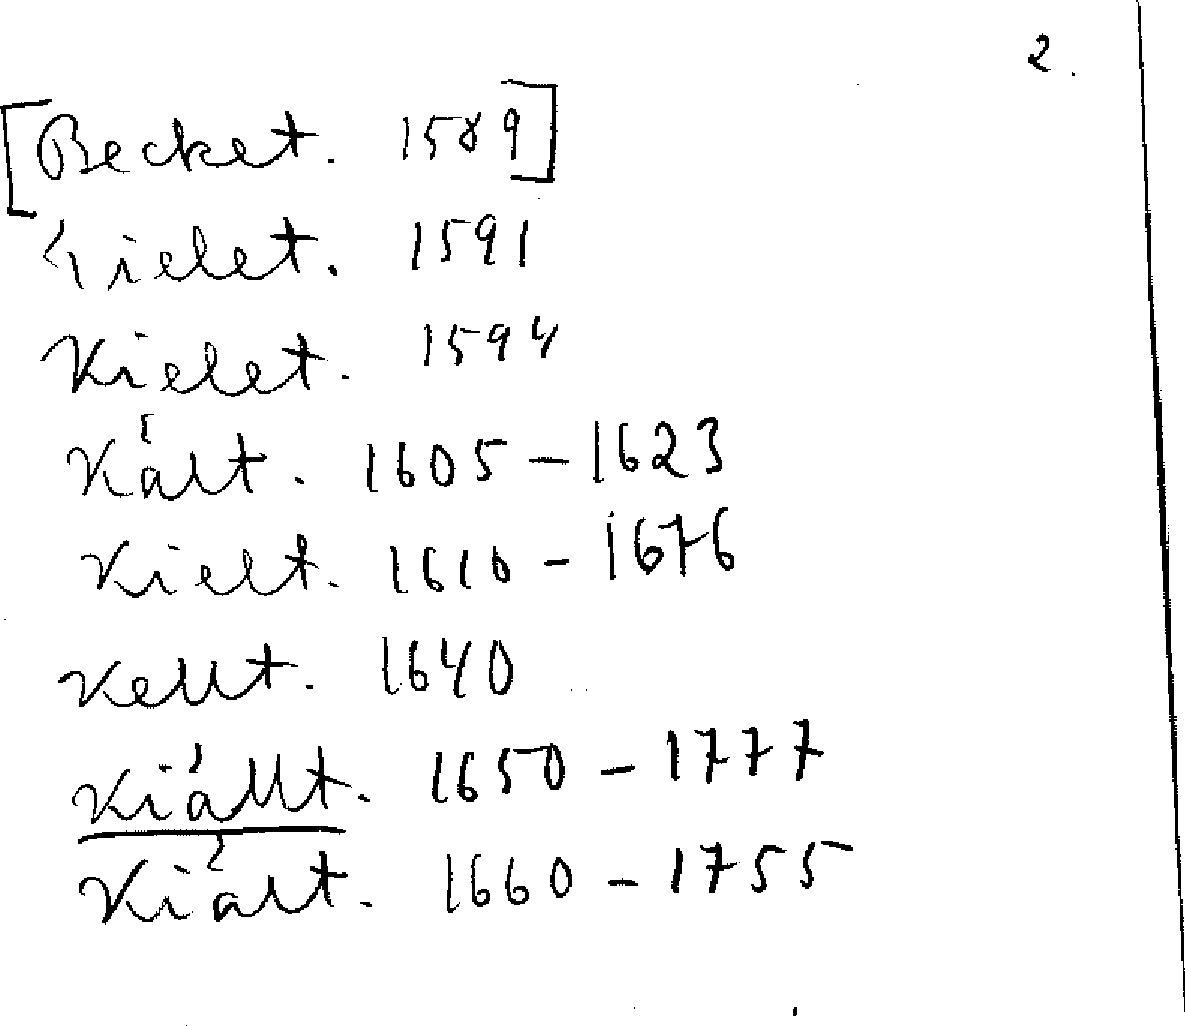 2.
[Becket. 1589]
Kielet. 1591
Kielet. 1594
Kält. 1605 – 1623
Kielt. 1610 – 1676
Kellt. 1640
Kiällt. 1650 – 1777
Kiält. 1660 – 1755